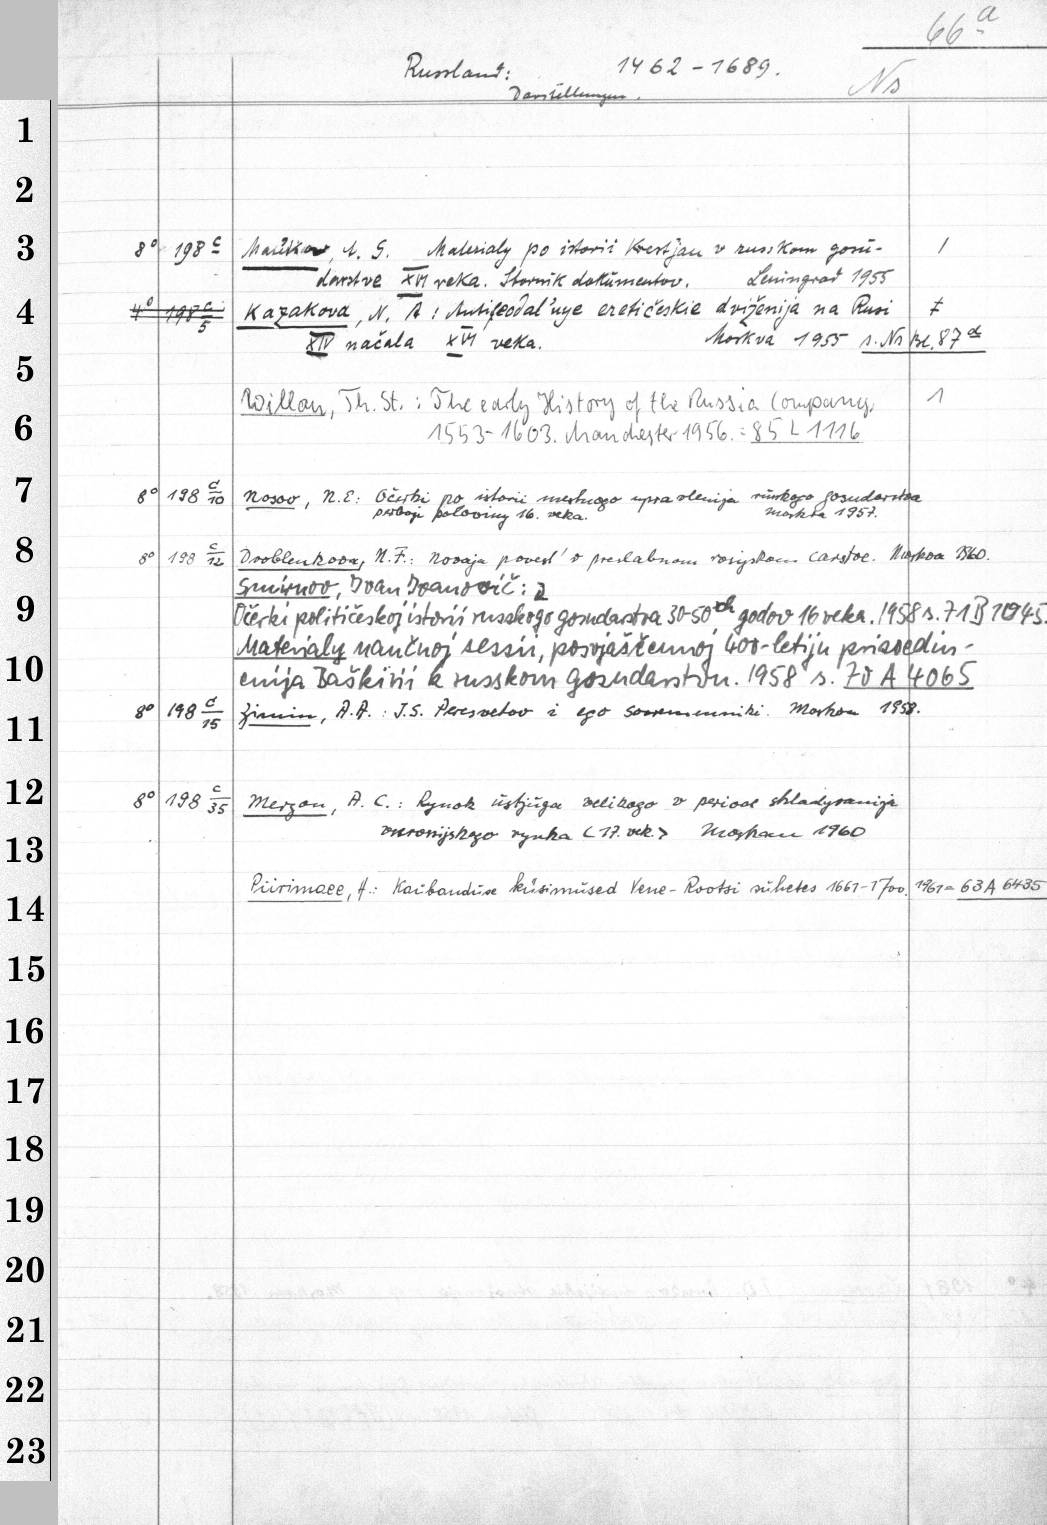 66a
Russland: 1462-1689.
Darstellungen.
Ns
1
2
3
8° 198 c Man'kov, A. G. Materialy po istorii Krestjan v russkom gosu- 1
darstve XVI veka. Sbornik dokumentov. Leningrad 1955
4
4° 198 c/5 Kazakova, N. A: Antifeodal'nye eretičeskie dviženija na Rusi 1
XIV načala XVI veka. Moskva 1955 s. Ns Bl. 87d
5
Willan, Th. St.: The early History of the Russia Company, 1
6
1553-1603. Manchester 1956. = 85 L 1116
7
8° 198 d/10 Nosov, N. E: Očerki po istorii mestnogo upravlenija russkogo gosudarstva
pervoj poloviny 16. veka. Moskva 1957.
8
8° 198 c/12 Droblenkova, N. F.: Novaja povest' o preslavnom rosijskom carstve. Moskva 1960.
Smirnov, Ivan Ivanovič:
9
Očerki političeskoj istorii russkogo gosudarstva 30-50ch godov 16 veka. 1958 s. 71 B 1045.
Materialy naučnoj sessii, posvjaščennoj 400-letiju prisoedin-
10
enija Baškirii k russkom gosudarstvu. 1958 s. 70 A 4065
8° 198 d/15 Zimin, A. A.: I. S. Peresvetov i ego sovremenniki. Moskva 1958.
11
12
8° 198 c/35 Merzon, A. C.: Rynok ustjuga velikogo v period skladyvanija
13
vserossijskogo rynka (17. vek.) Moskau 1960
Piirimaee, H.: Kaubanduse küsimused Vene-Rootsi suhetes 1661-1700. 1961 = 63 A 6435
14
15
16
17
18
19
20
21
22
23